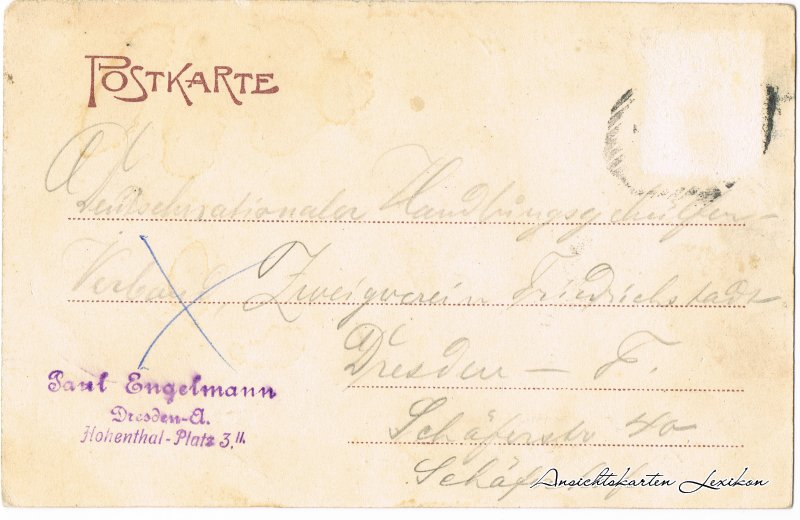 POSTKARTE
Deutschnationaler Handlungsgehilfen-
Verband, Zweigverein Friedrichstadt
Dresden – F.
Schäferstr 40.
Paul Engelmann
Dresden-A.
Hohenthal-Platz 3.II.
Ansichtskarten Lexikon